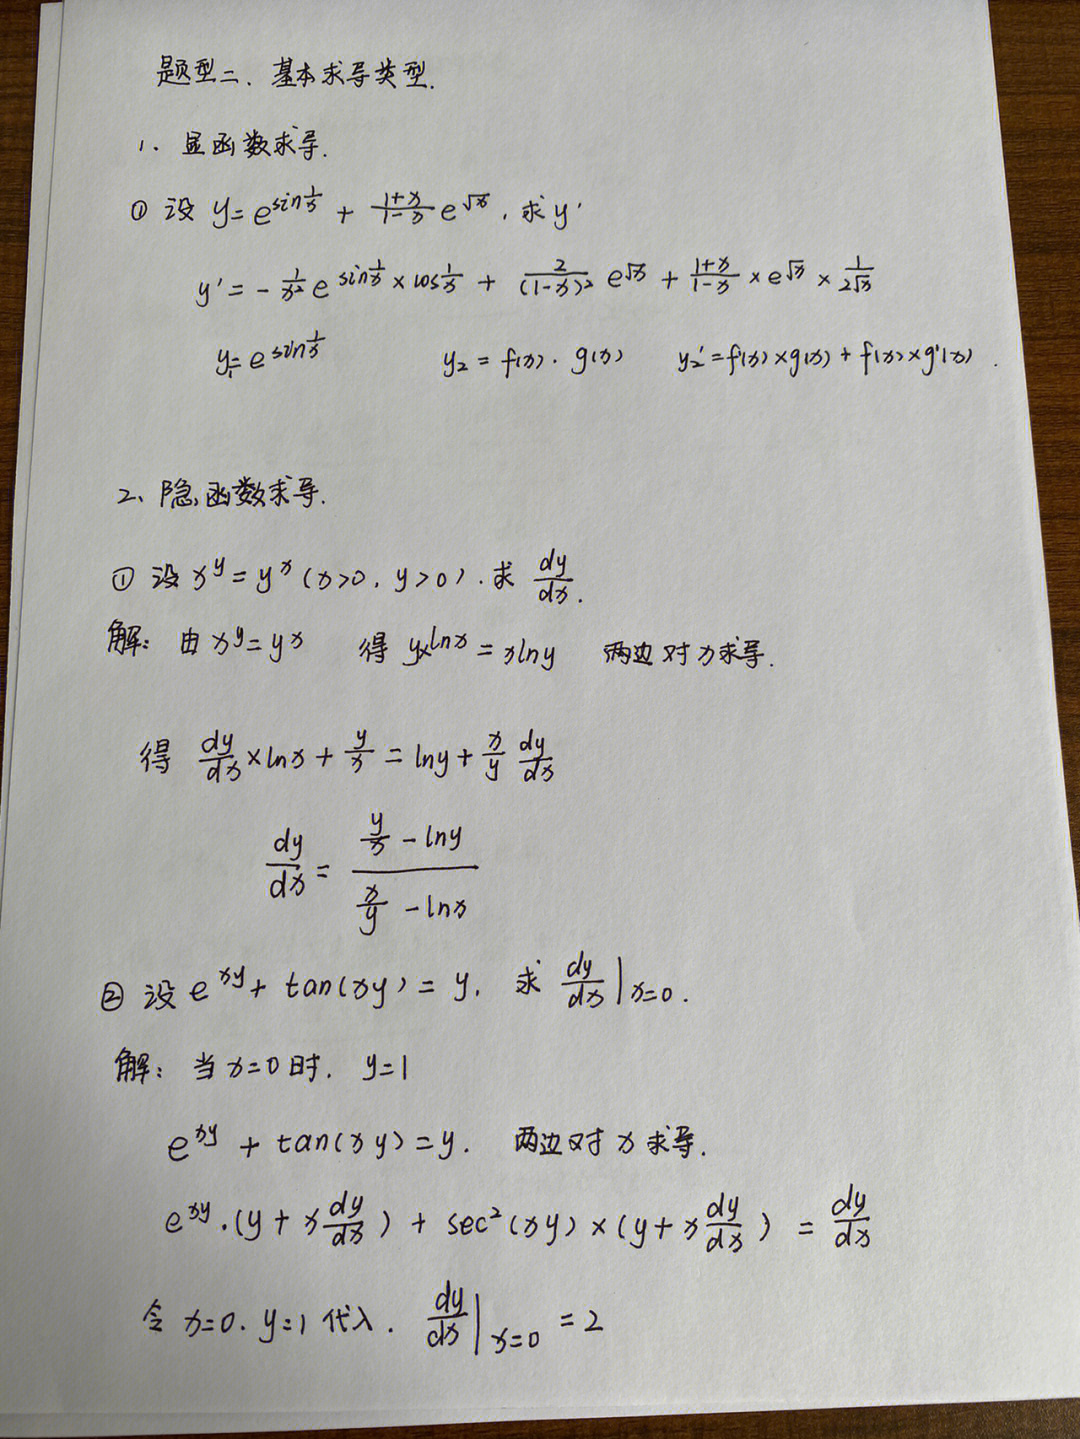 题型二、基本求导类型.
1、显函数求导.
① 设 y=e^{sin\frac{1}{x}} + \frac{1+x}{1-x} e^{\sqrt{x}}, 求 y'
y' = -\frac{1}{x^2} e^{sin\frac{1}{x}} × cos\frac{1}{x} + \frac{2}{(1-x)^2} e^{\sqrt{x}} + \frac{1+x}{1-x} × e^{\sqrt{x}} × \frac{1}{2\sqrt{x}}
y_1 = e^{sin\frac{1}{x}} y_2 = f(x) · g(x) y_2' = f'(x) × g(x) + f(x) × g'(x).
2、隐函数求导.
① 设 x^y = y^x (x>0, y>0). 求 \frac{dy}{dx}.
解: 由 x^y = y^x 得 y×lnx = xlny 两边对x求导.
得 \frac{dy}{dx} × lnx + \frac{y}{x} = lny + \frac{x}{y} \frac{dy}{dx}
\frac{dy}{dx} = \frac{\frac{y}{x} - lny}{\frac{x}{y} - lnx}
② 设 e^{xy} + tan(xy) = y, 求 \frac{dy}{dx}|_{x=0}.
解: 当 x=0时. y=1
e^{xy} + tan(xy) = y. 两边对x求导.
e^{xy}·(y + x\frac{dy}{dx}) + sec²(xy) × (y + x\frac{dy}{dx}) = \frac{dy}{dx}
令 x=0. y=1 代入. \frac{dy}{dx}|_{x=0} = 2